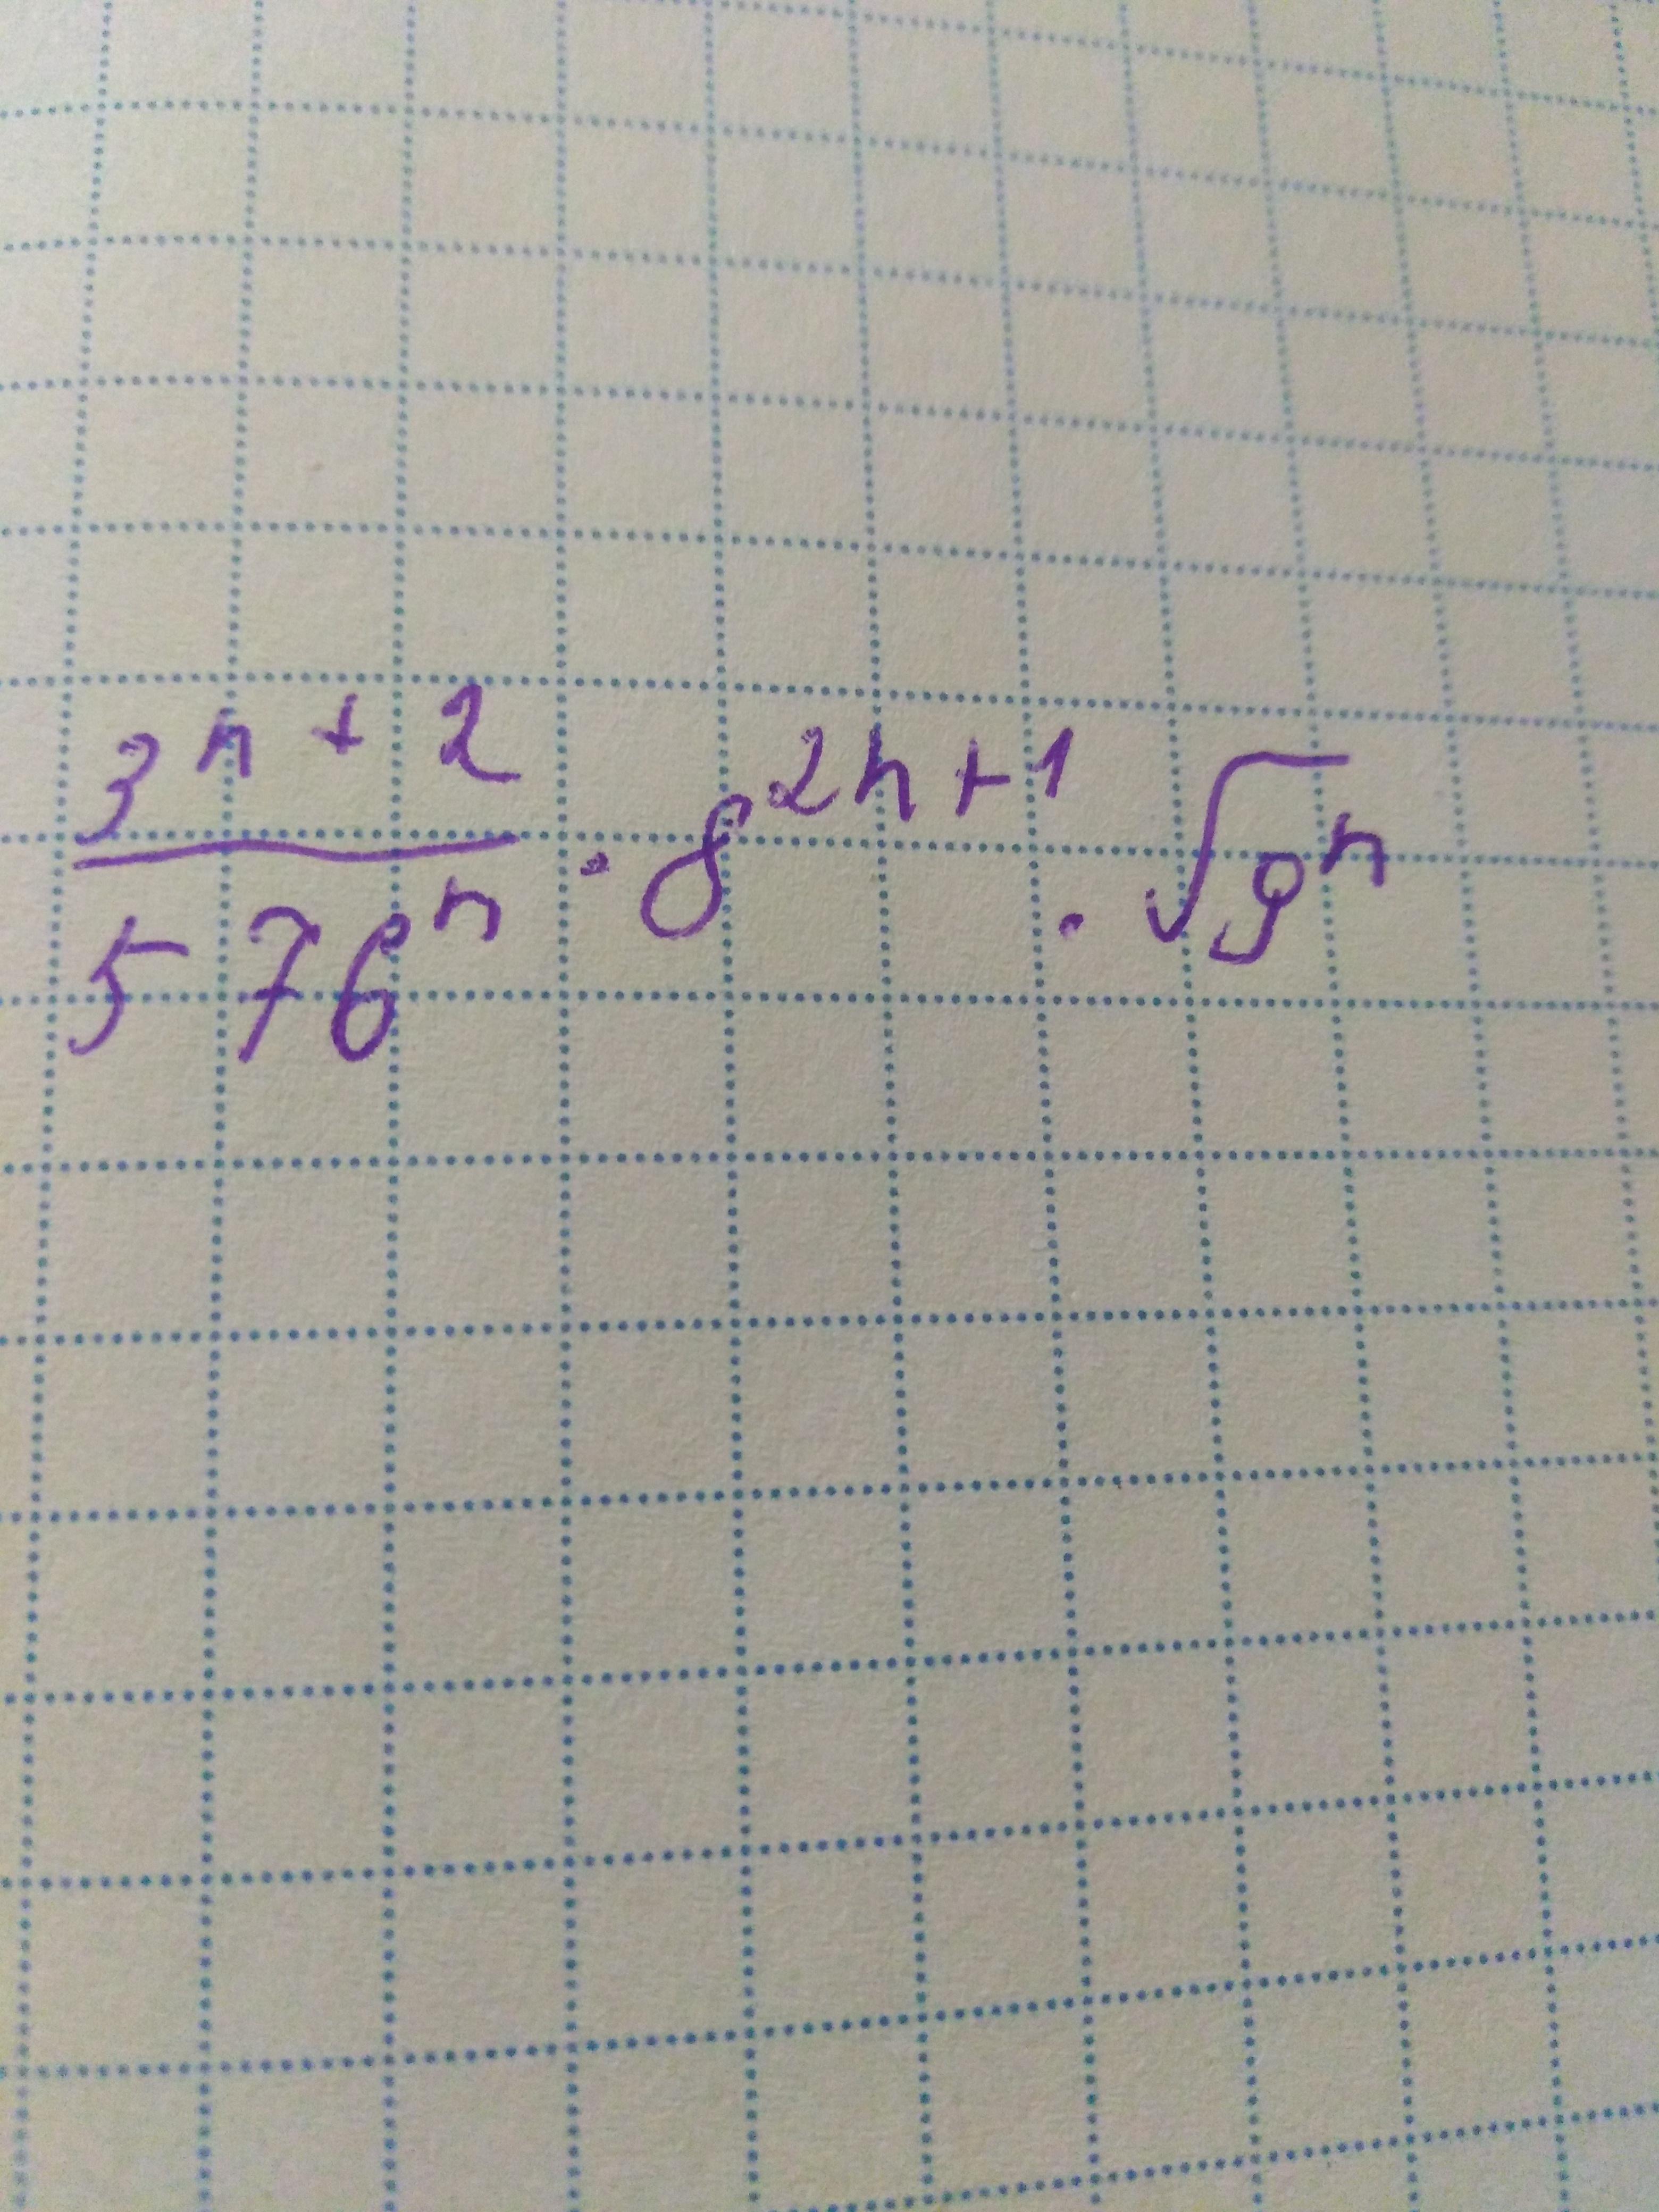 3^{n+2}/576^n · 8^{2n+1} · √9^n